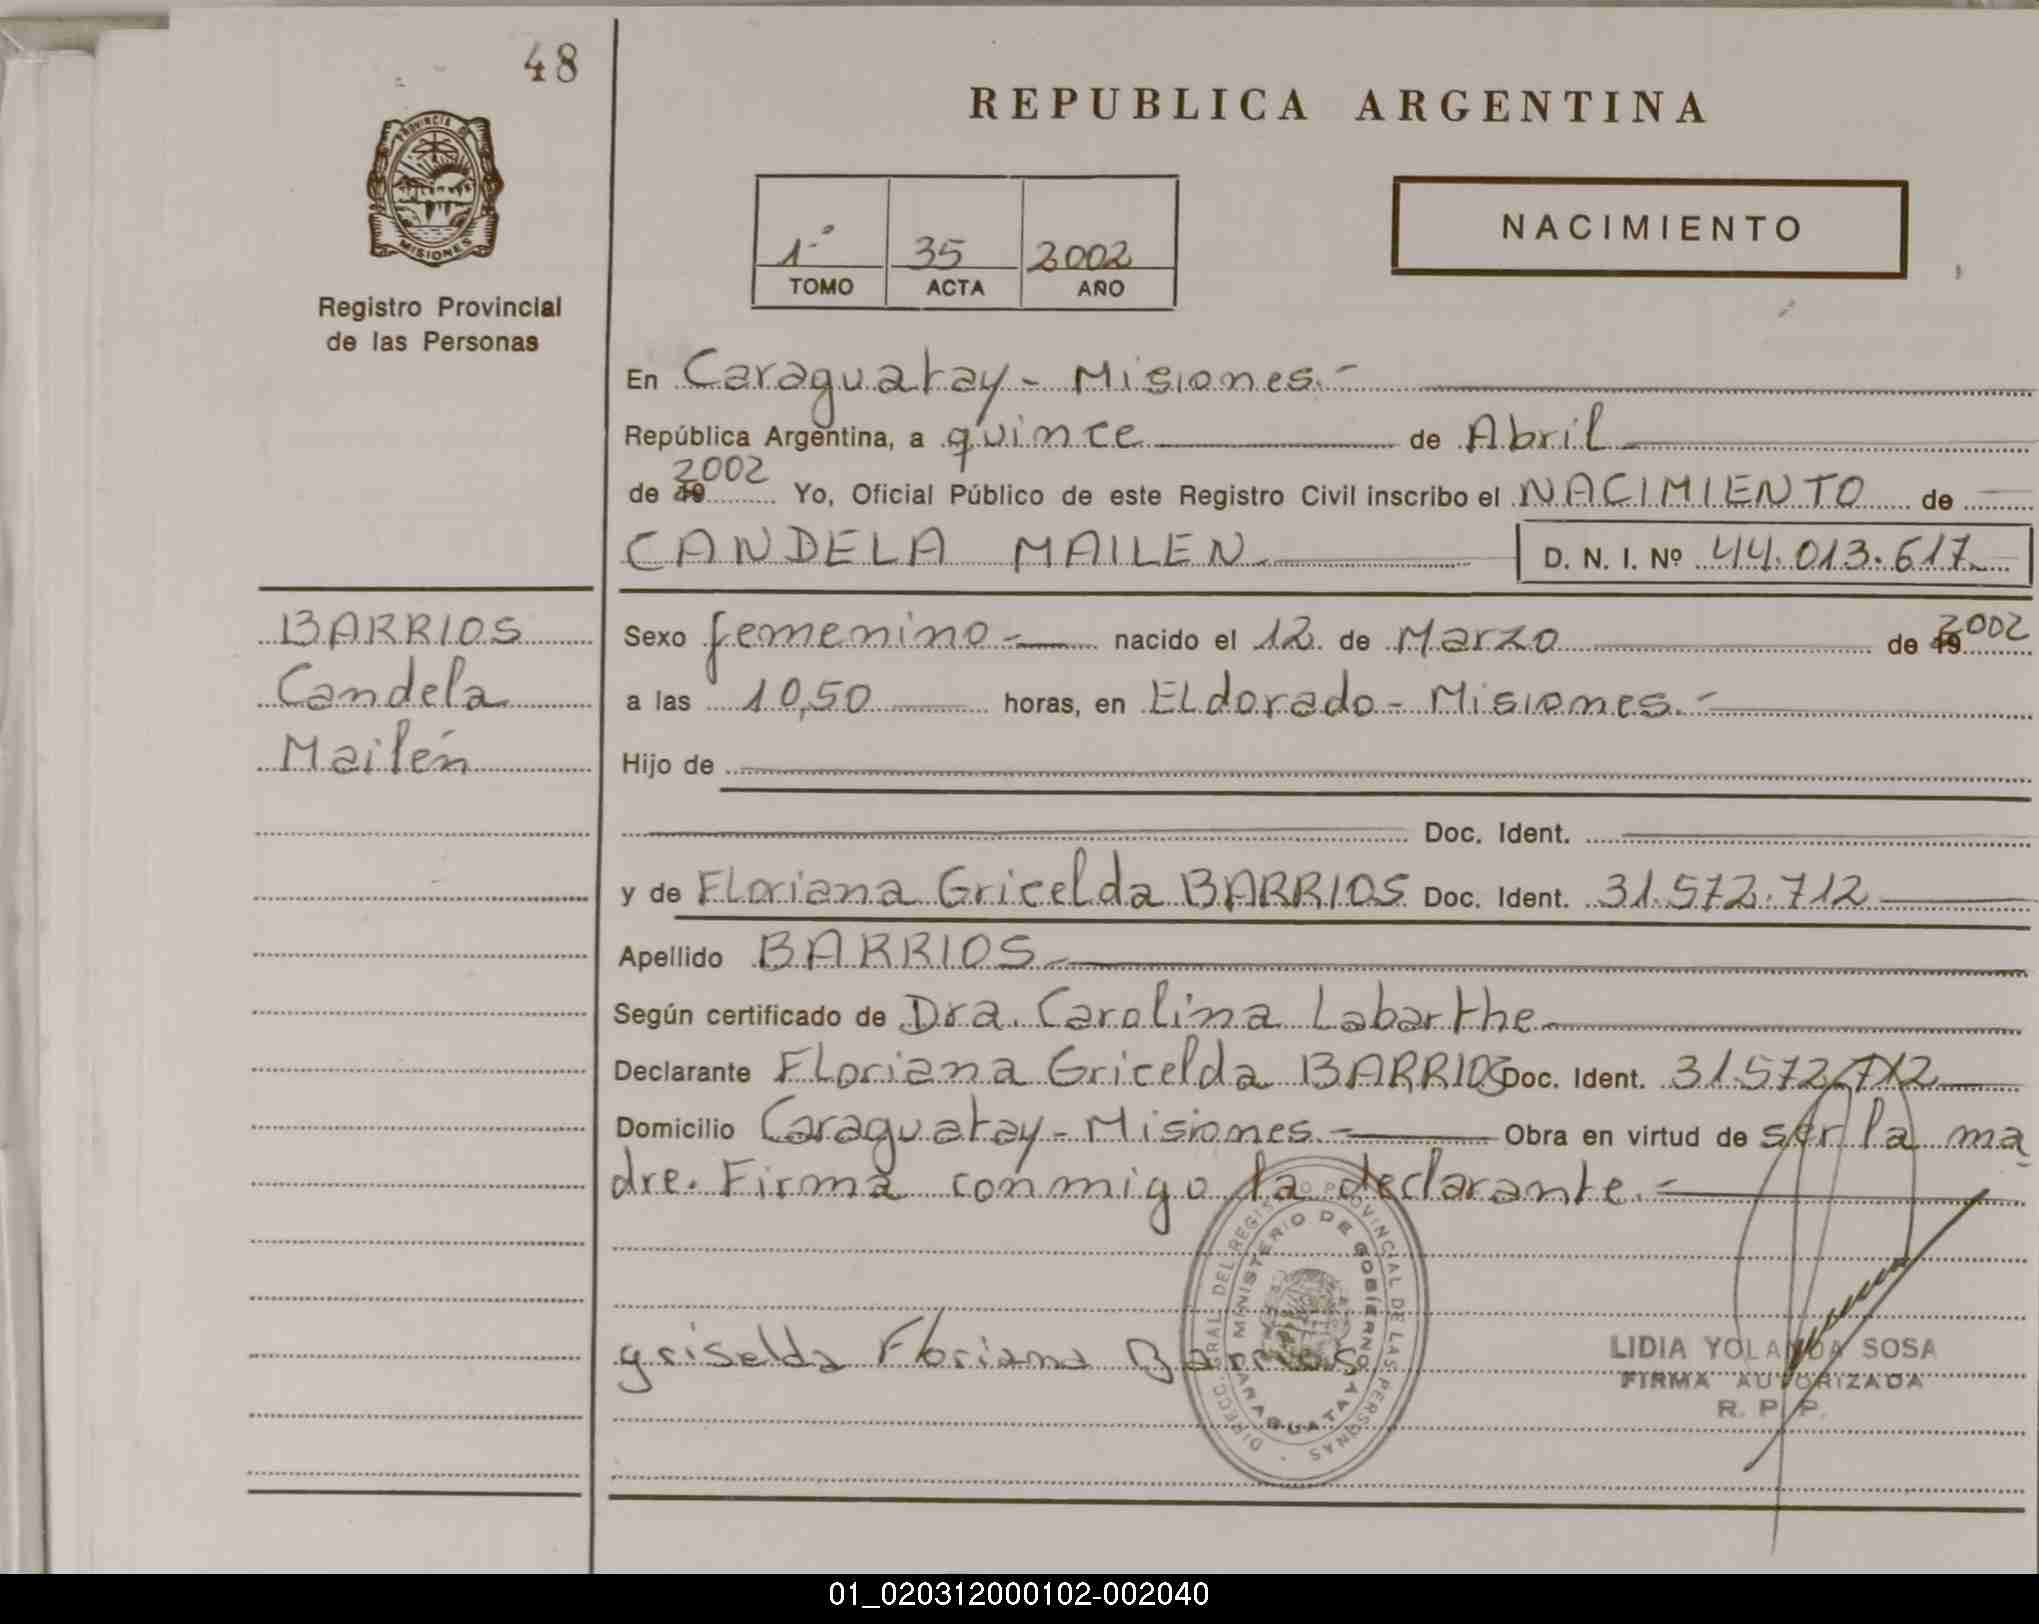 48
REPUBLICA ARGENTINA
PROVINCIA DE
MISIONES
Registro Provincial
de las Personas
1º 35 2002
TOMO ACTA AÑO
NACIMIENTO
En Caraguatay - Misiones.-
República Argentina, a quince de Abril
de 19 2002 Yo, Oficial Público de este Registro Civil inscribo el NACIMIENTO de
CANDELA MAILEN D. N. I. Nº 44.013.617
BARRIOS
Candela
Mailén
Sexo femenino.- nacido el 12 de Marzo de 19 2002
a las 10,50 horas, en Eldorado - Misiones.-
Hijo de
Doc. Ident.
y de Floriana Gricelda BARRIOS Doc. Ident. 31.572.712
Apellido BARRIOS
Según certificado de Dra. Carolina Labarthe
Declarante Floriana Gricelda BARRIOS Doc. Ident. 31.572.712
Domicilio Caraguatay - Misiones.- Obra en virtud de ser la ma
dre. Firma conmigo la declarante.-
DIRECC. GRAL. DEL REGISTRO PROVINCIAL DE LAS PERSONAS
MINISTERIO DE GOBIERNO
CARAGUATAY
griselda Floriana Barrios
LIDIA YOLANDA SOSA
FIRMA AUTORIZADA
R. P. P.
01_020312000102-002040